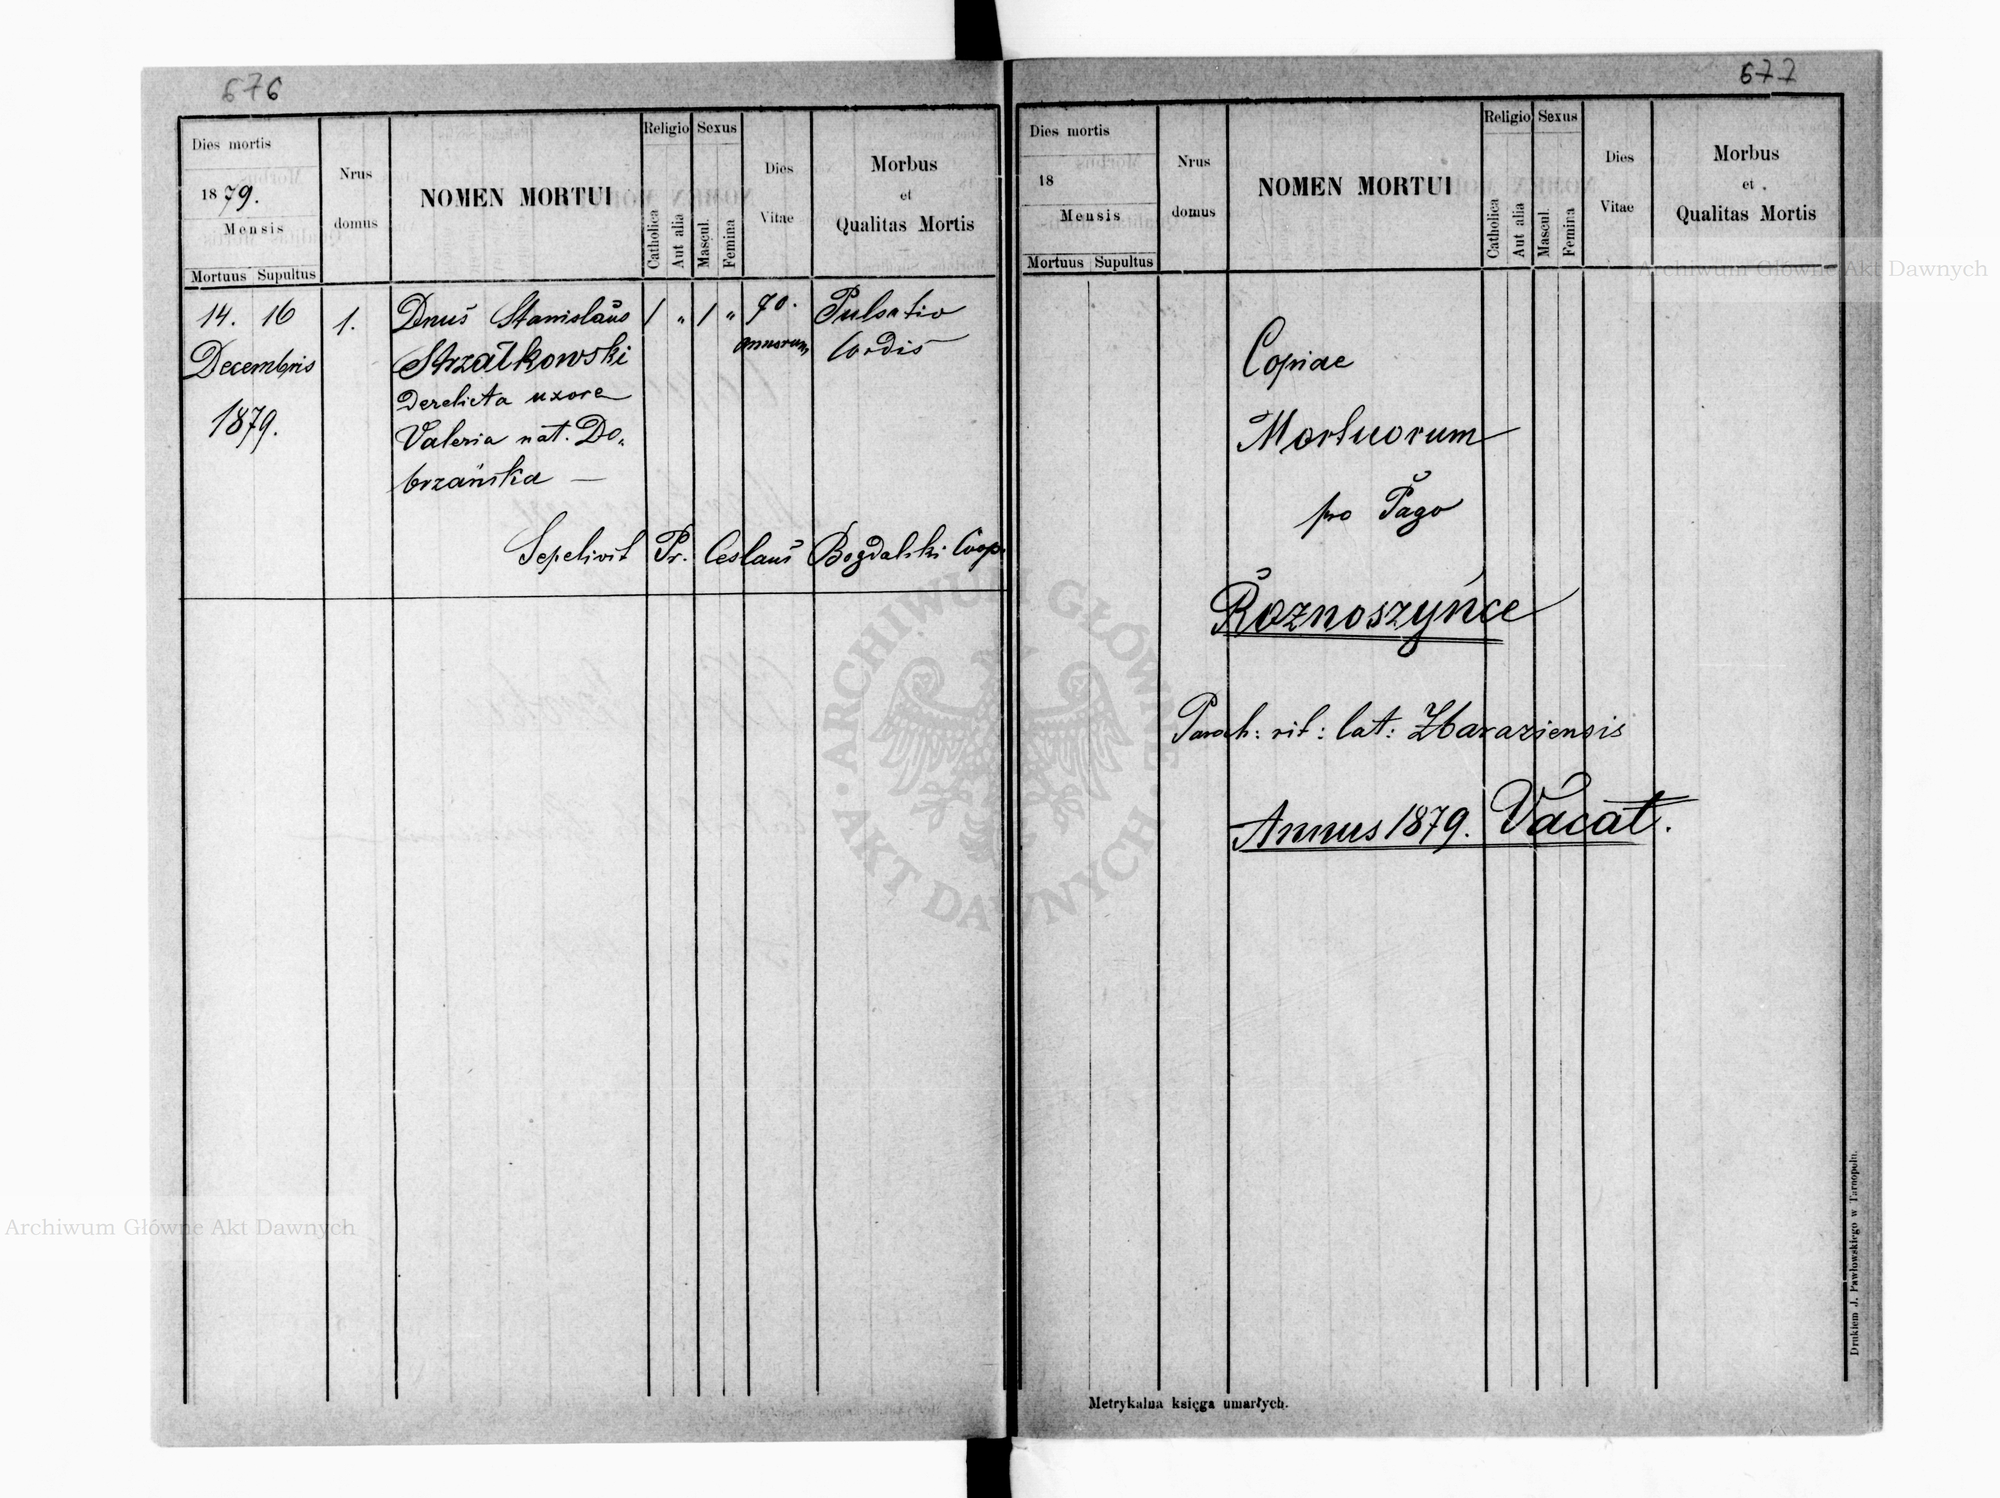 676
Dies mortis
1879.
Mensis
Mortuus Supultus
Nrus
domus
NOMEN MORTUI
Religio
Catholica
Aut alia
Sexus
Mascul.
Femina
Dies
Vitae
Morbus
et
Qualitas Mortis
14. 16
Decembris
1879.
1.
Dnus Stanislaus
Strzałkowski
Derelicta uxore
Valeria nat. Do„
brzańska —
1 „ 1 „
70.
annorum
Pulsatio
Cordis
Sepelivit Pr. Ceslaus Bogdalski Coop.
677
Dies mortis
18
Mensis
Mortuus Supultus
Nrus
domus
NOMEN MORTUI
Religio
Catholica
Aut alia
Sexus
Mascul.
Femina
Dies
Vitae
Morbus
et
Qualitas Mortis
Copiae
Mortuorum
pro Pago
Roznoszyńce
Paroch: rit: lat: Zbaraziensis
Annus 1879. Vacat.
Metrykalna księga umarłych.
Drukiem J. Pawłowskiego w Tarnopolu.
ARCHIWUM GŁÓWNE AKT DAWNYCH
Archiwum Główne Akt Dawnych
Archiwum Główne Akt Dawnych